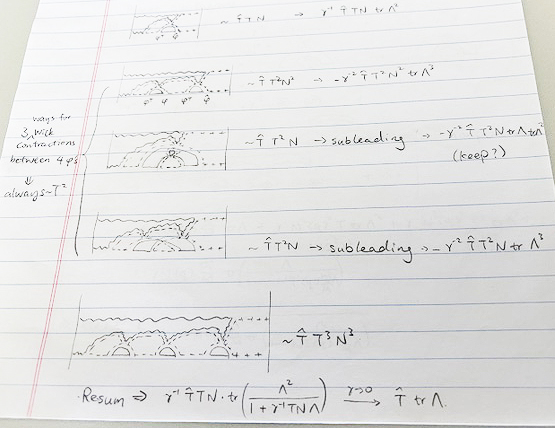 ~ T̂TN → γ⁻¹ T̂TN tr Λ²
~ T̂T²N² → -γ⁻² T̂T²N² tr Λ³
ways for
3 Wick
contractions
between 4 φ's
⇓
always ~T²
φ φ φ φ
~ T̂T²N → subleading → -γ⁻² T̂T²N tr Λ tr Λ²
(keep?)
~ T̂T²N → subleading → -γ⁻² T̂T²N tr Λ³
~ T̂T³N³
Resum ⇒ γ⁻¹ T̂TN · tr( Λ² / (1 + γ⁻¹TNΛ) ) →(γ→0) T̂ tr Λ.